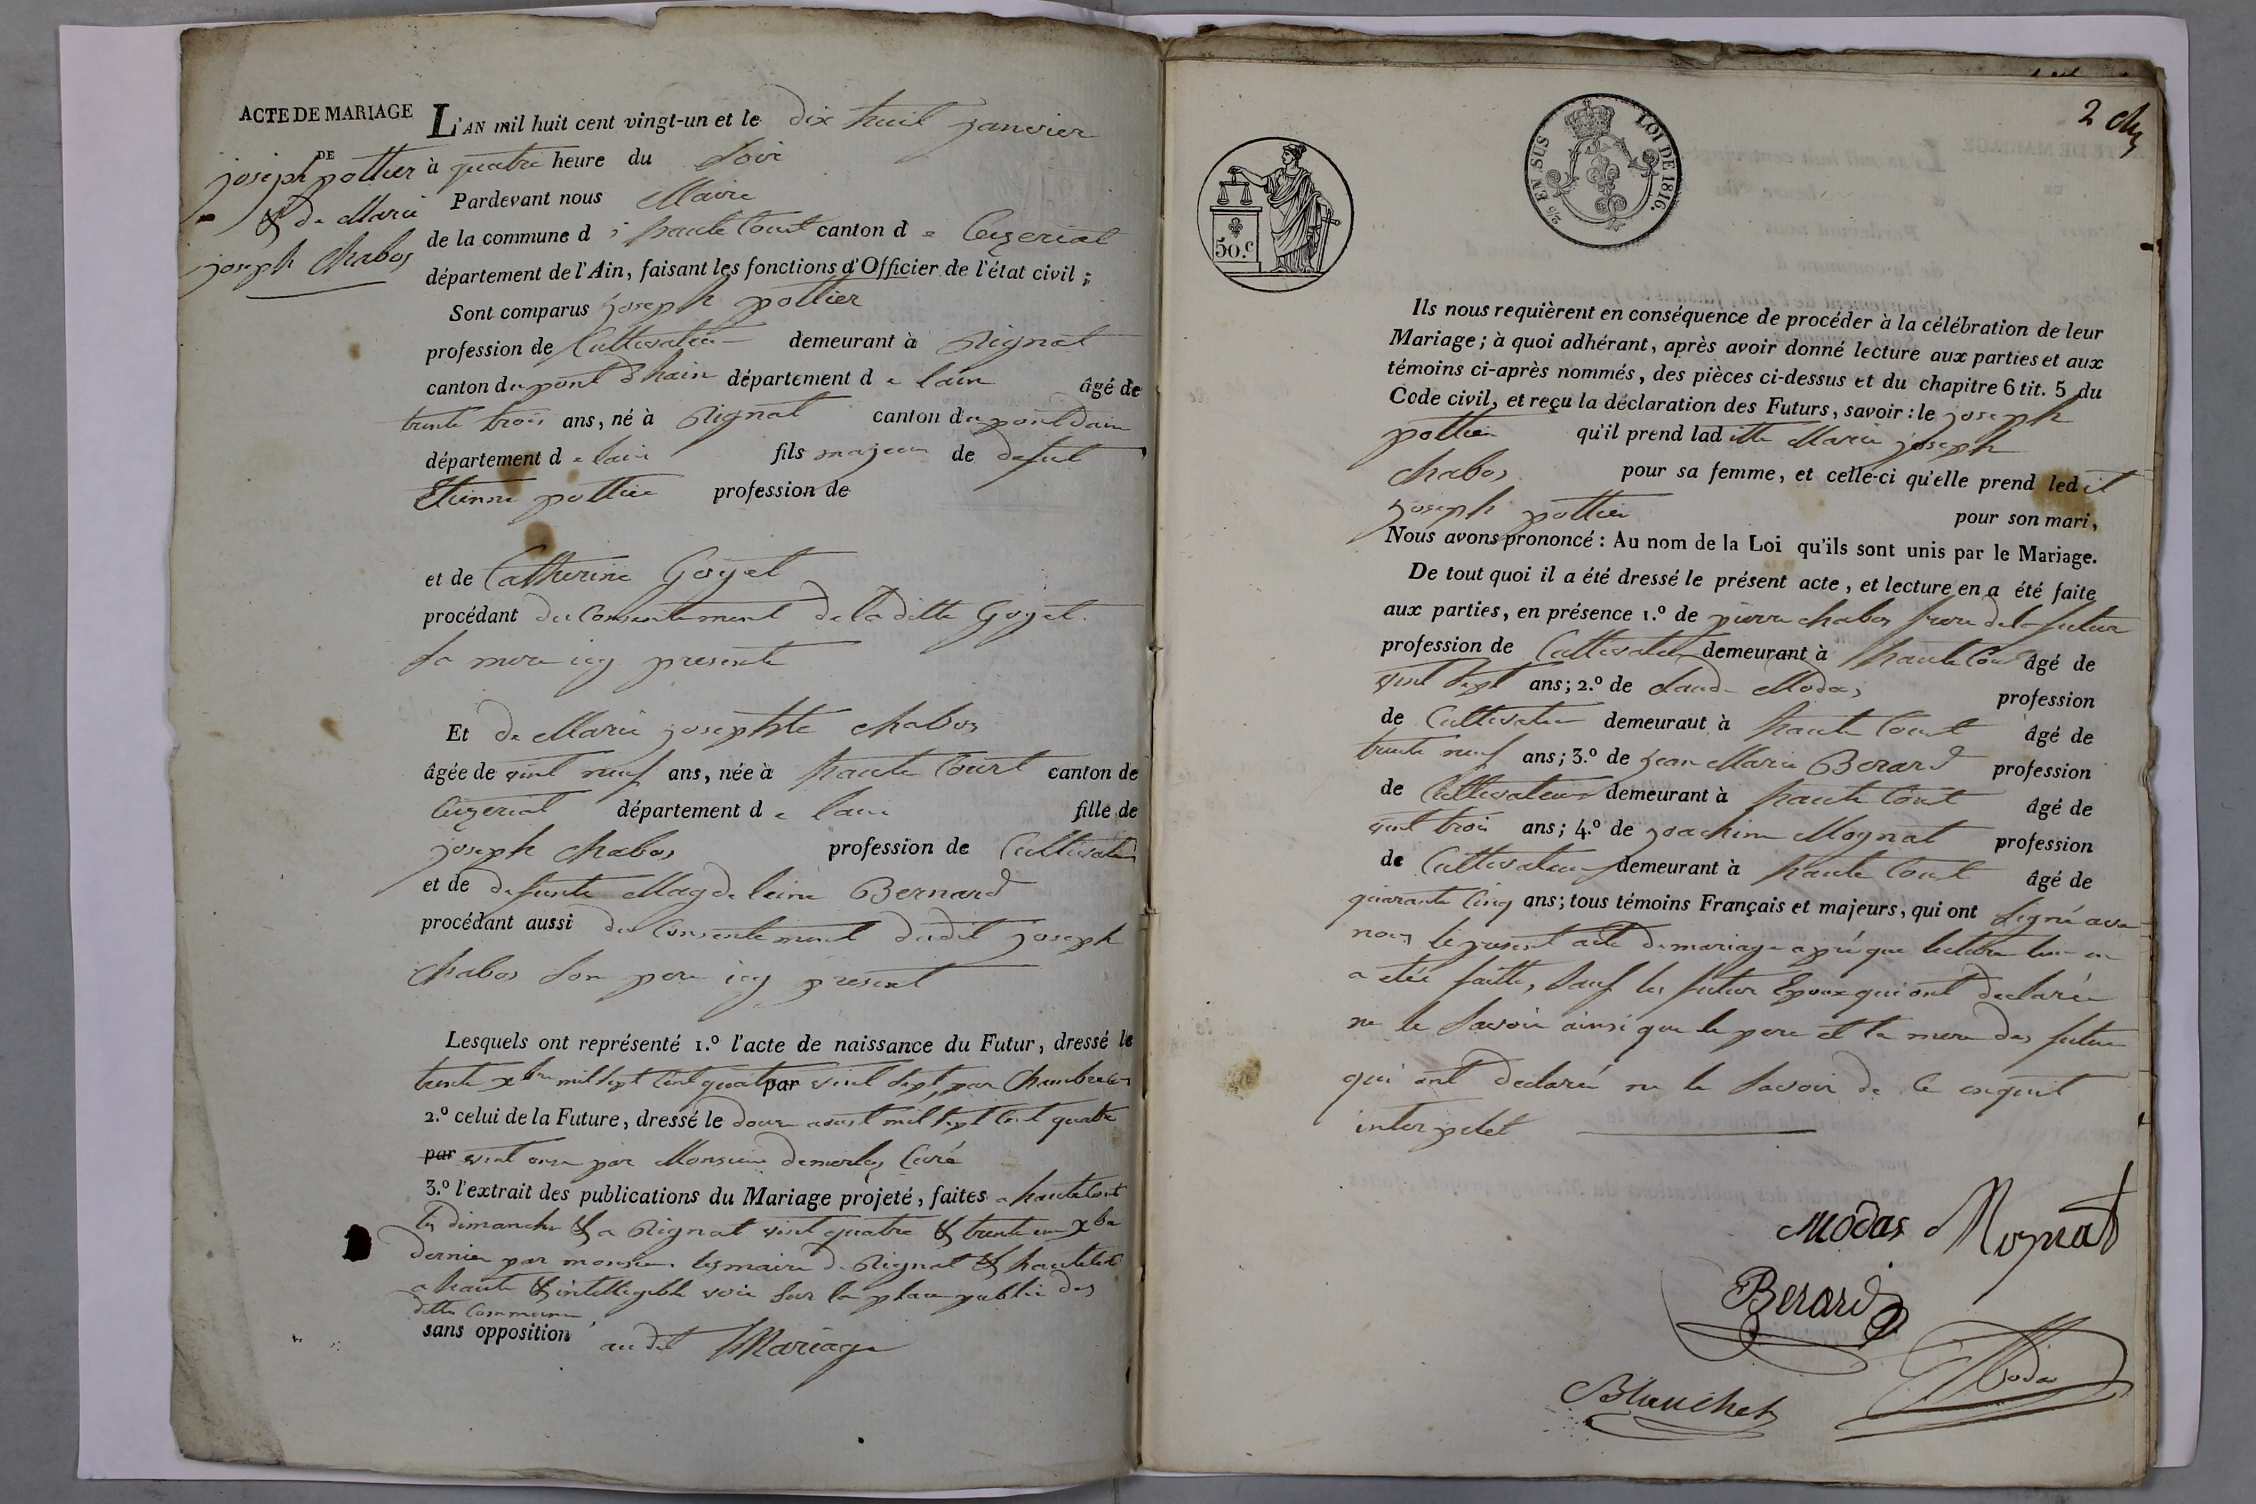 ACTE DE MARIAGE
DE
joseph pottier
& de Marie
joseph Chabos
L'AN mil huit cent vingt-un et le dix huit janvier
à quatre heure du soir
Pardevant nous Maire
de la commune d haute Court canton d e Ceyzeriat
département de l'Ain, faisant les fonctions d'Officier de l'état civil;
Sont comparus joseph pottier
profession de Cultivateur demeurant à Rignat
canton du pont d'hain département d e lain âgé de
trente trois ans, né à Rignat canton du pont dain
département d e lain fils majeur de defut
Etienne pottier profession de
et de Catherine Goyet
procédant du Consentement de la ditte Goyet
sa mere icy presente
Et de Marie josephte Chabos
âgée de vint neuf ans, née à haute Court canton de
Ceyzeriat département d e lain fille de
joseph Chabos profession de Cultivateur
et de defunte Magdeleine Bernard
procédant aussi du Consentement dudit joseph
Chabos son pere icy present
Lesquels ont représenté 1.º l'acte de naissance du Futur, dressé le
trente xbre mil sept Cent quatre par vint sept, par
2.º celui de la Future, dressé le douze aoust mil sept Cent quatre
par vint onze par Monsieur Curé
3.º l'extrait des publications du Mariage projeté, faites a haute Court
les dimanche & a Rignat vint quatre & trente un xbre
dernier par monsieur les maire de Rignat & haute Court
a haute & intelligible voix sur la place public des
dittes Commune
sans opposition au dit Mariage
2
50.c
25 EN SUS
LOI DE 1816.
Ils nous requièrent en conséquence de procéder à la célébration de leur
Mariage; à quoi adhérant, après avoir donné lecture aux parties et aux
témoins ci-après nommés, des pièces ci-dessus et du chapitre 6 tit. 5 du
Code civil, et reçu la déclaration des Futurs, savoir: le joseph
pottier qu'il prend lad itte Marie joseph
Chabos pour sa femme, et celle-ci qu'elle prend led it
joseph pottier pour son mari,
Nous avons prononcé: Au nom de la Loi qu'ils sont unis par le Mariage.
De tout quoi il a été dressé le présent acte, et lecture en a été faite
aux parties, en présence 1.º de pierre chabos frere de la future
profession de Cultivateur demeurant à haute Court âgé de
vint sept ans; 2.º de Claude Modas profession
de Cultivateur demeuraut à haute Court âgé de
trente neuf ans; 3.º de jean Marie Berard profession
de Cultivateur demeurant à haute Court âgé de
vint trois ans; 4.º de joachim Mognat profession
de Cultivateur demeurant à haute Court âgé de
quarante Cinq ans; tous témoins Français et majeurs, qui ont signé avec
nous le present acte de mariage apré que lecture leur en
a etée faitte, sauf les futur Epoux qui ont declarée
ne le savoir ainsi que le pere et la mere des futur
qui ont declaré ne le savoir de ce enquit
interpelet
Modas Mognat
Berard
Blanchet Modas